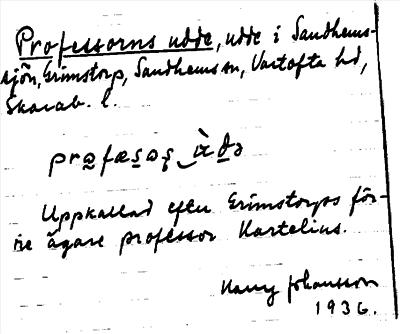 Professorns udde, udde i Sandhems-
sjön, Grimstorp, Sandhems sn, Vartofta hd,
Skarab. l.
Uppkallad efter Grimstorps för-
re ägare professor Hartelius.
Harry Johansson
1936.